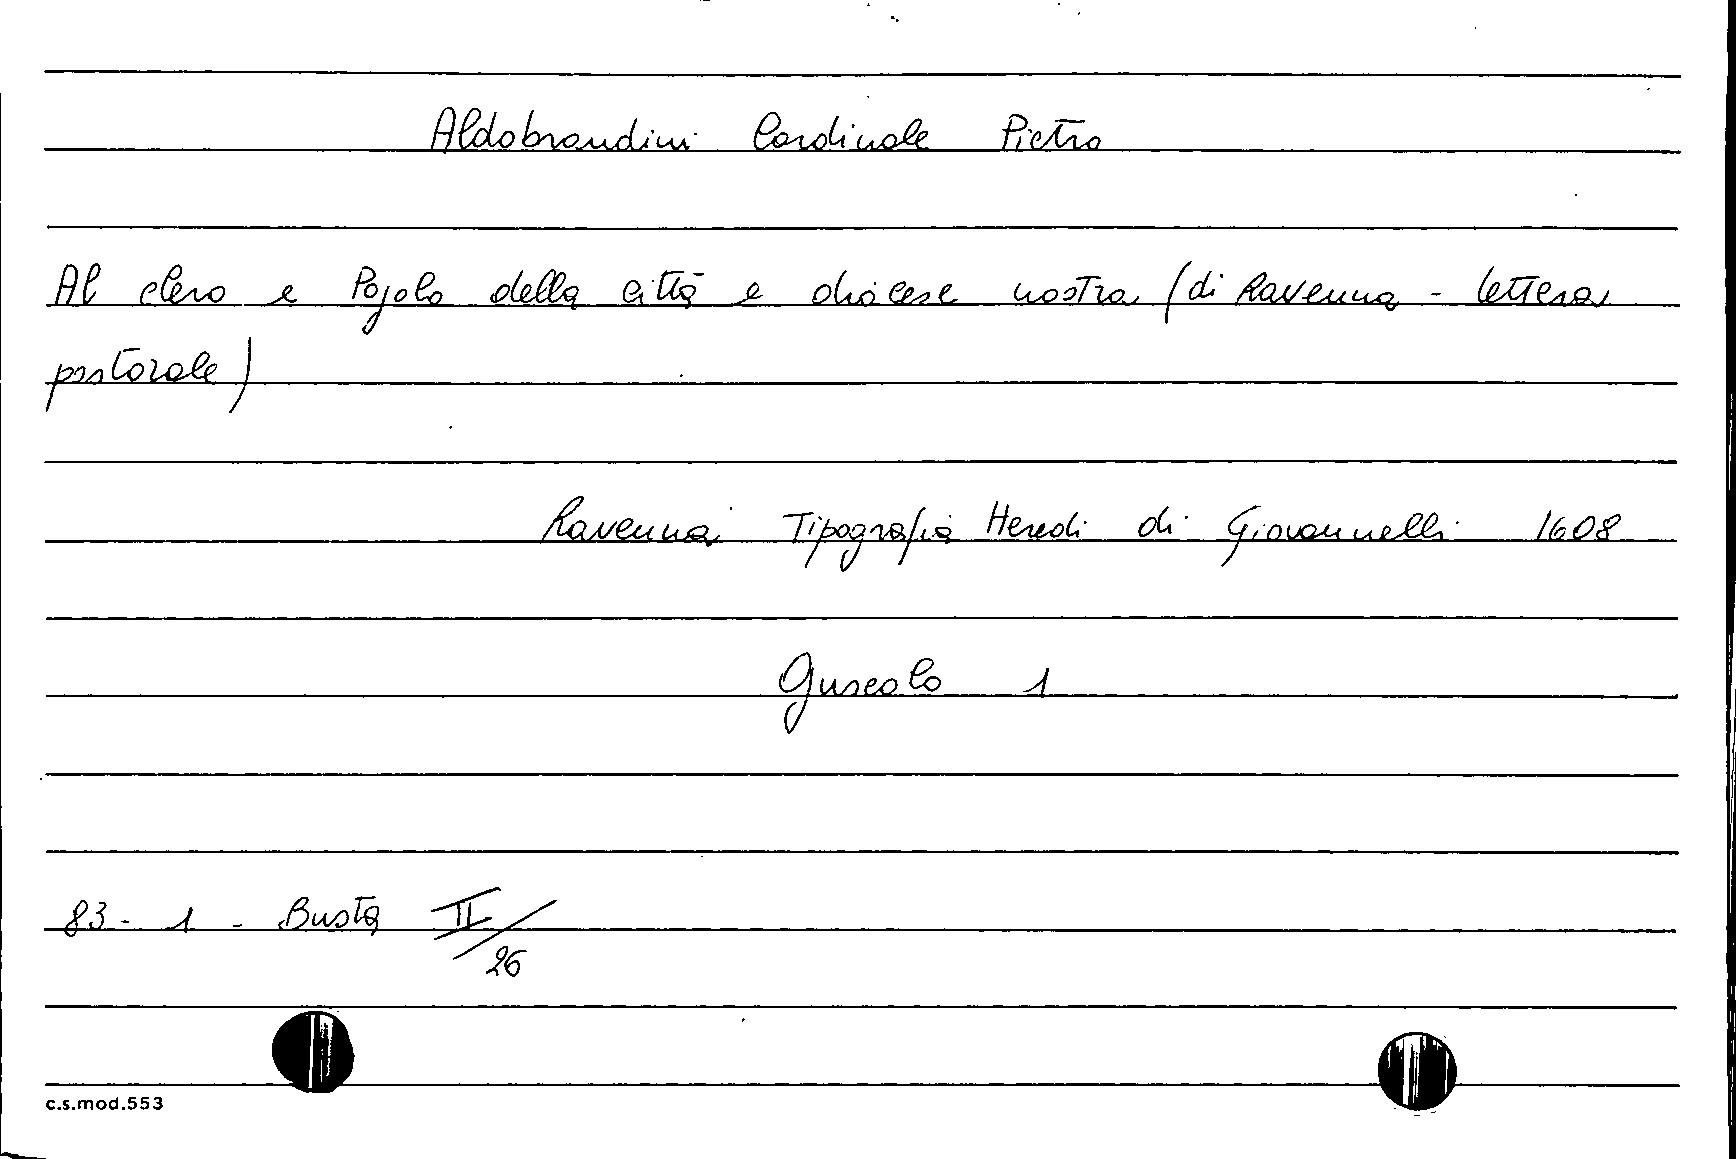 Aldobrandini Cardinale Pietro
Al clero e Popolo della città e diocese nostra (di Ravenna - lettera
pastorale)
Ravenna Tipografia Heredi di Giovannelli 1608
1
83 - 1 - Busta II/26
c.s.mod.553